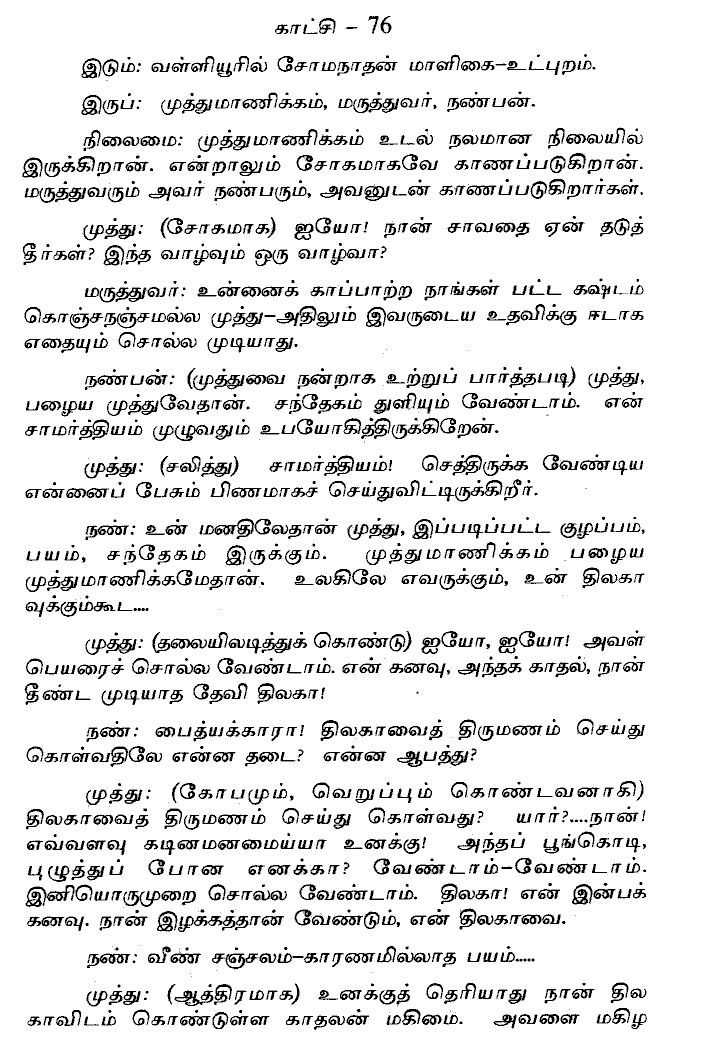 காட்சி – 76
இடும்: வள்ளியூரில் சோமநாதன் மாளிகை–உட்புறம்.
இருப்: முத்துமாணிக்கம், மருத்துவர், நண்பன்.
நிலைமை: முத்துமாணிக்கம் உடல் நலமான நிலையில்
இருக்கிறான். என்றாலும் சோகமாகவே காணப்படுகிறான்.
மருத்துவரும் அவர் நண்பரும், அவனுடன் காணப்படுகிறார்கள்.
முத்து: (சோகமாக) ஐயோ! நான் சாவதை ஏன் தடுத்
தீர்கள்? இந்த வாழ்வும் ஒரு வாழ்வா?
மருத்துவர்: உன்னைக் காப்பாற்ற நாங்கள் பட்ட கஷ்டம்
கொஞ்சநஞ்சமல்ல முத்து–அதிலும் இவருடைய உதவிக்கு ஈடாக
எதையும் சொல்ல முடியாது.
நண்பன்: (முத்துவை நன்றாக உற்றுப் பார்த்தபடி) முத்து,
பழைய முத்துவேதான். சந்தேகம் துளியும் வேண்டாம். என்
சாமர்த்தியம் முழுவதும் உபயோகித்திருக்கிறேன்.
முத்து: (சலித்து) சாமர்த்தியம்! செத்திருக்க வேண்டிய
என்னைப் பேசும் பிணமாகச் செய்துவிட்டிருக்கிறீர்.
நண்: உன் மனதிலேதான் முத்து, இப்படிப்பட்ட குழப்பம்,
பயம், சந்தேகம் இருக்கும். முத்துமாணிக்கம் பழைய
முத்துமாணிக்கமேதான். உலகிலே எவருக்கும், உன் திலகா
வுக்கும்கூட....
முத்து: (தலையிலடித்துக் கொண்டு) ஐயோ, ஐயோ! அவள்
பெயரைச் சொல்ல வேண்டாம். என் கனவு, அந்தக் காதல், நான்
தீண்ட முடியாத தேவி திலகா!
நண்: பைத்யக்காரா! திலகாவைத் திருமணம் செய்து
கொள்வதிலே என்ன தடை? என்ன ஆபத்து?
முத்து: (கோபமும், வெறுப்பும் கொண்டவனாகி)
திலகாவைத் திருமணம் செய்து கொள்வது? யார்?....நான்!
எவ்வளவு கடினமனமைய்யா உனக்கு! அந்தப் பூங்கொடி,
புழுத்துப் போன எனக்கா? வேண்டாம்–வேண்டாம்.
இனியொருமுறை சொல்ல வேண்டாம். திலகா! என் இன்பக்
கனவு. நான் இழக்கத்தான் வேண்டும், என் திலகாவை.
நண்: வீண் சஞ்சலம்–காரணமில்லாத பயம்.....
முத்து: (ஆத்திரமாக) உனக்குத் தெரியாது நான் தில
காவிடம் கொண்டுள்ள காதலன் மகிமை. அவளை மகிழ